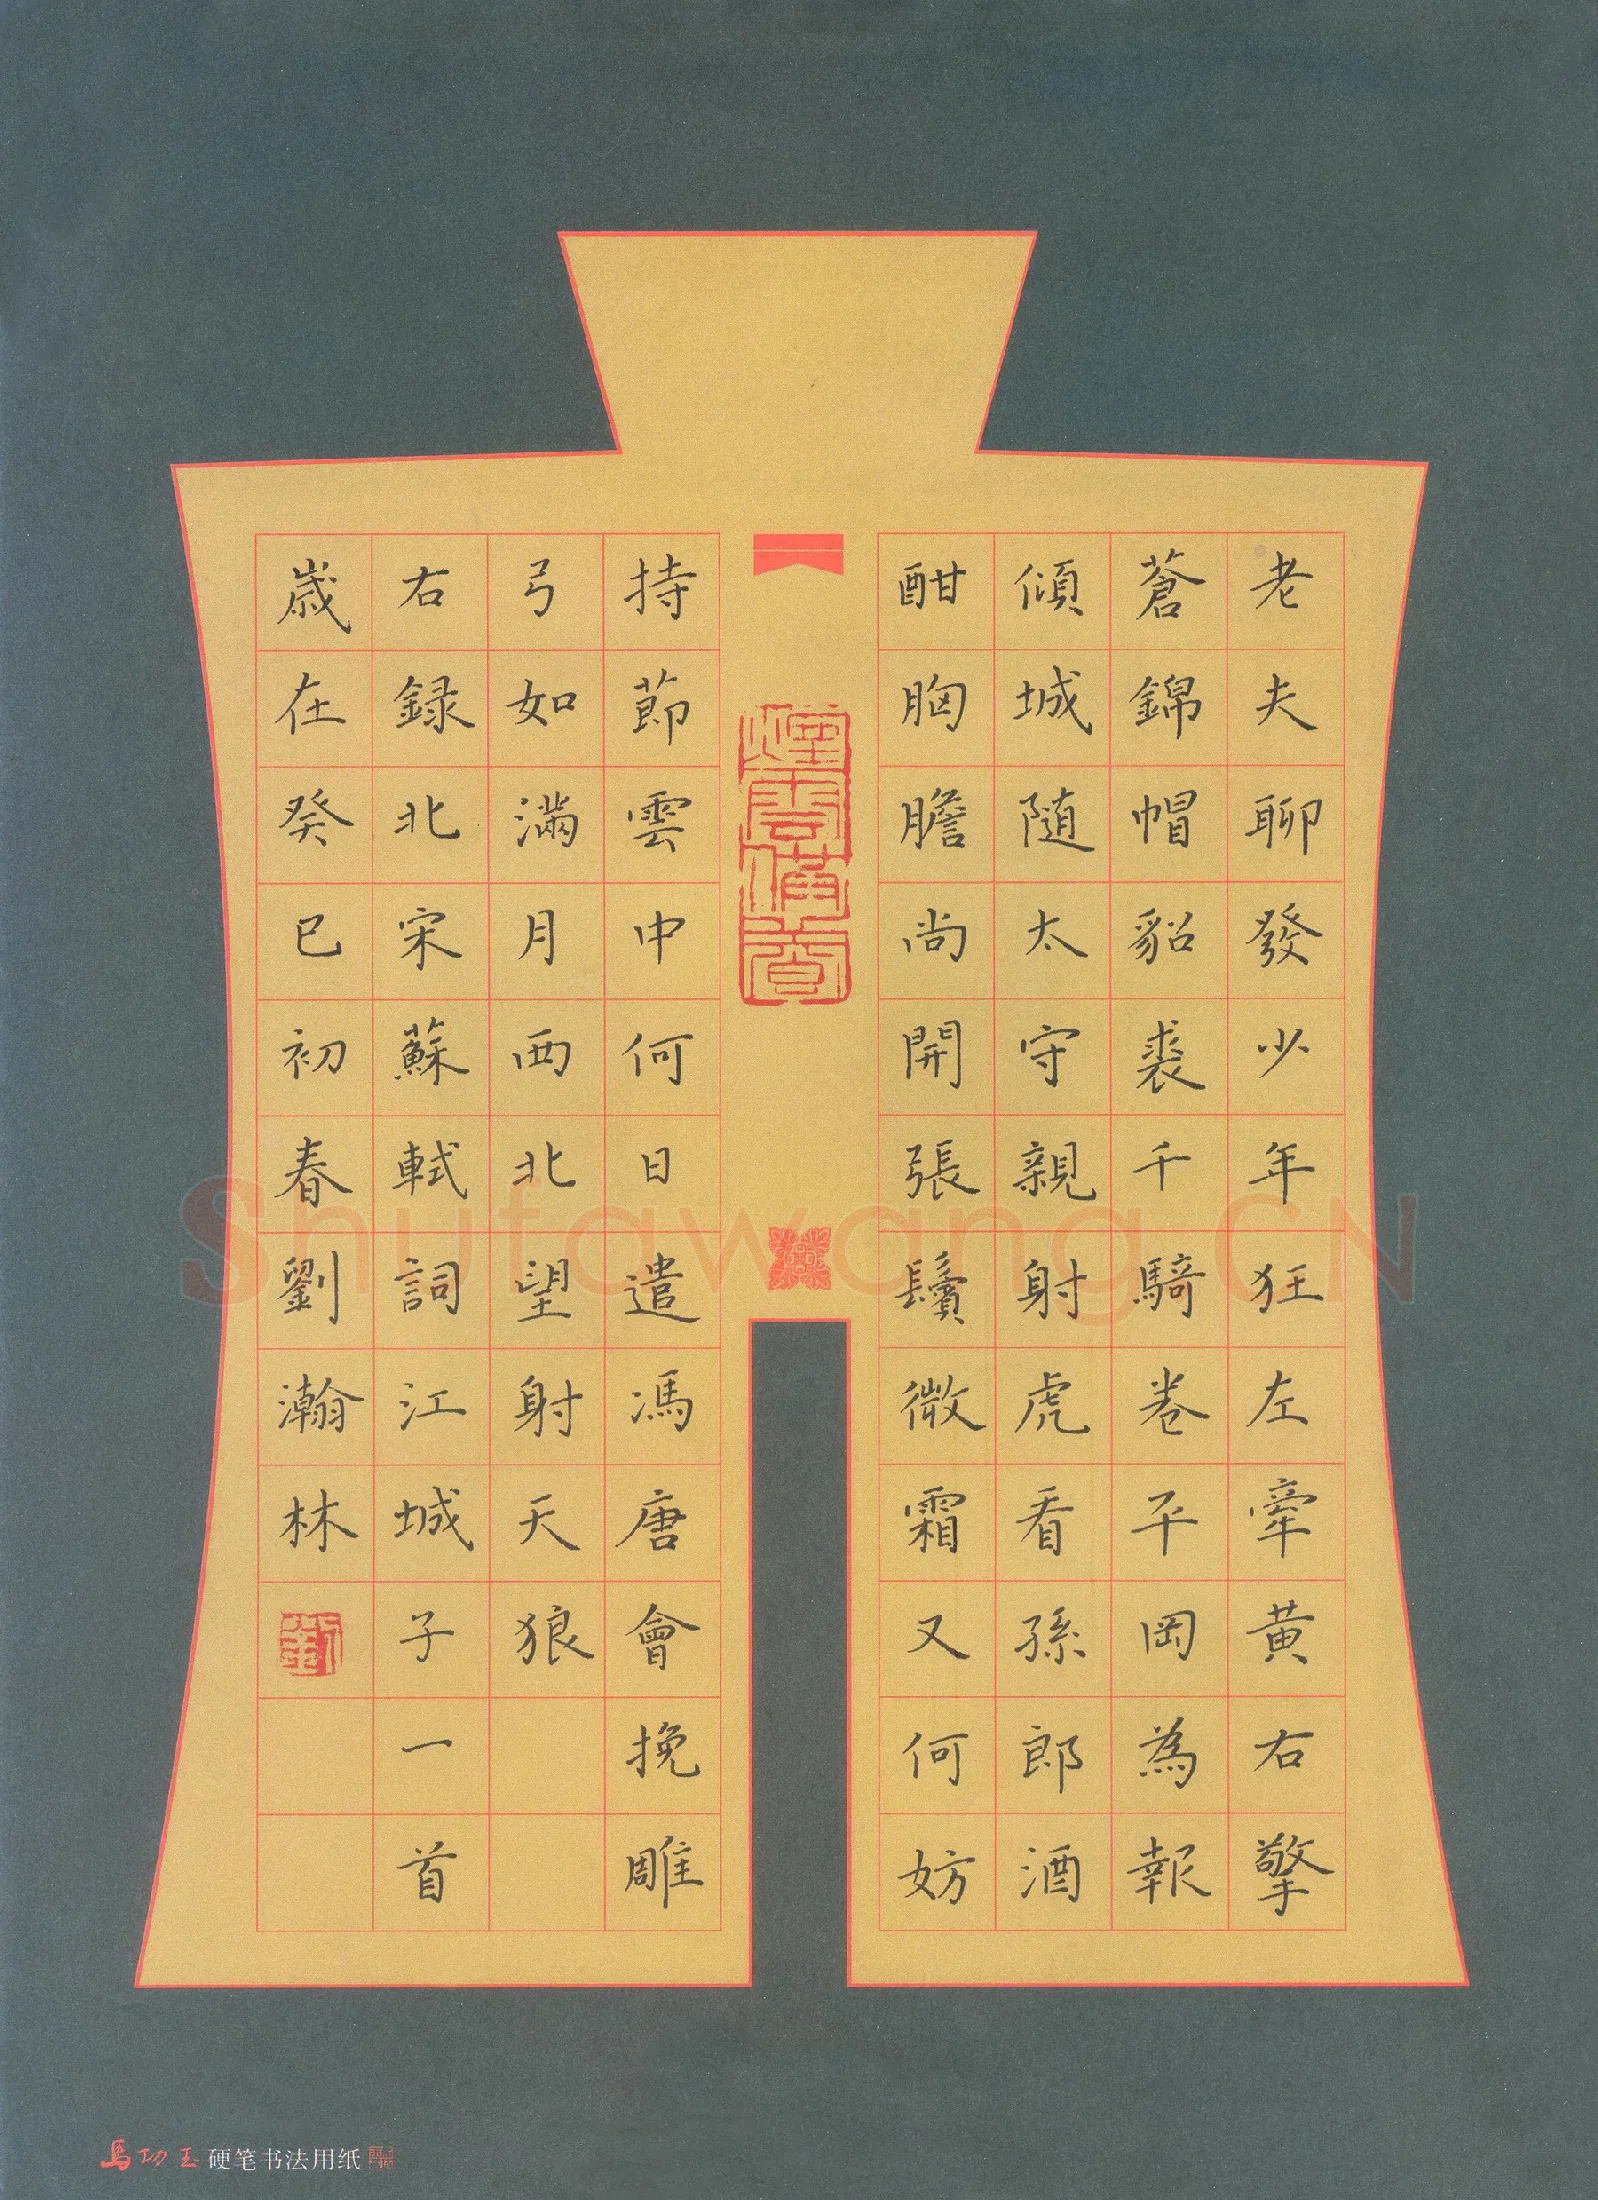 老夫聊發少年狂左牽黃右擎
蒼錦帽貂裘千騎卷平岡為報
傾城随太守親射虎看孫郎酒
酣胸膽尚開張鬢微霜又何妨
持節雲中何日遣馮唐會挽雕
弓如滿月西北望射天狼
右録北宋蘇軾詞江城子一首
歲在癸巳初春劉瀚林
劉
煙雲滿卷
Shufawang.CN
馬功玉硬笔书法用纸